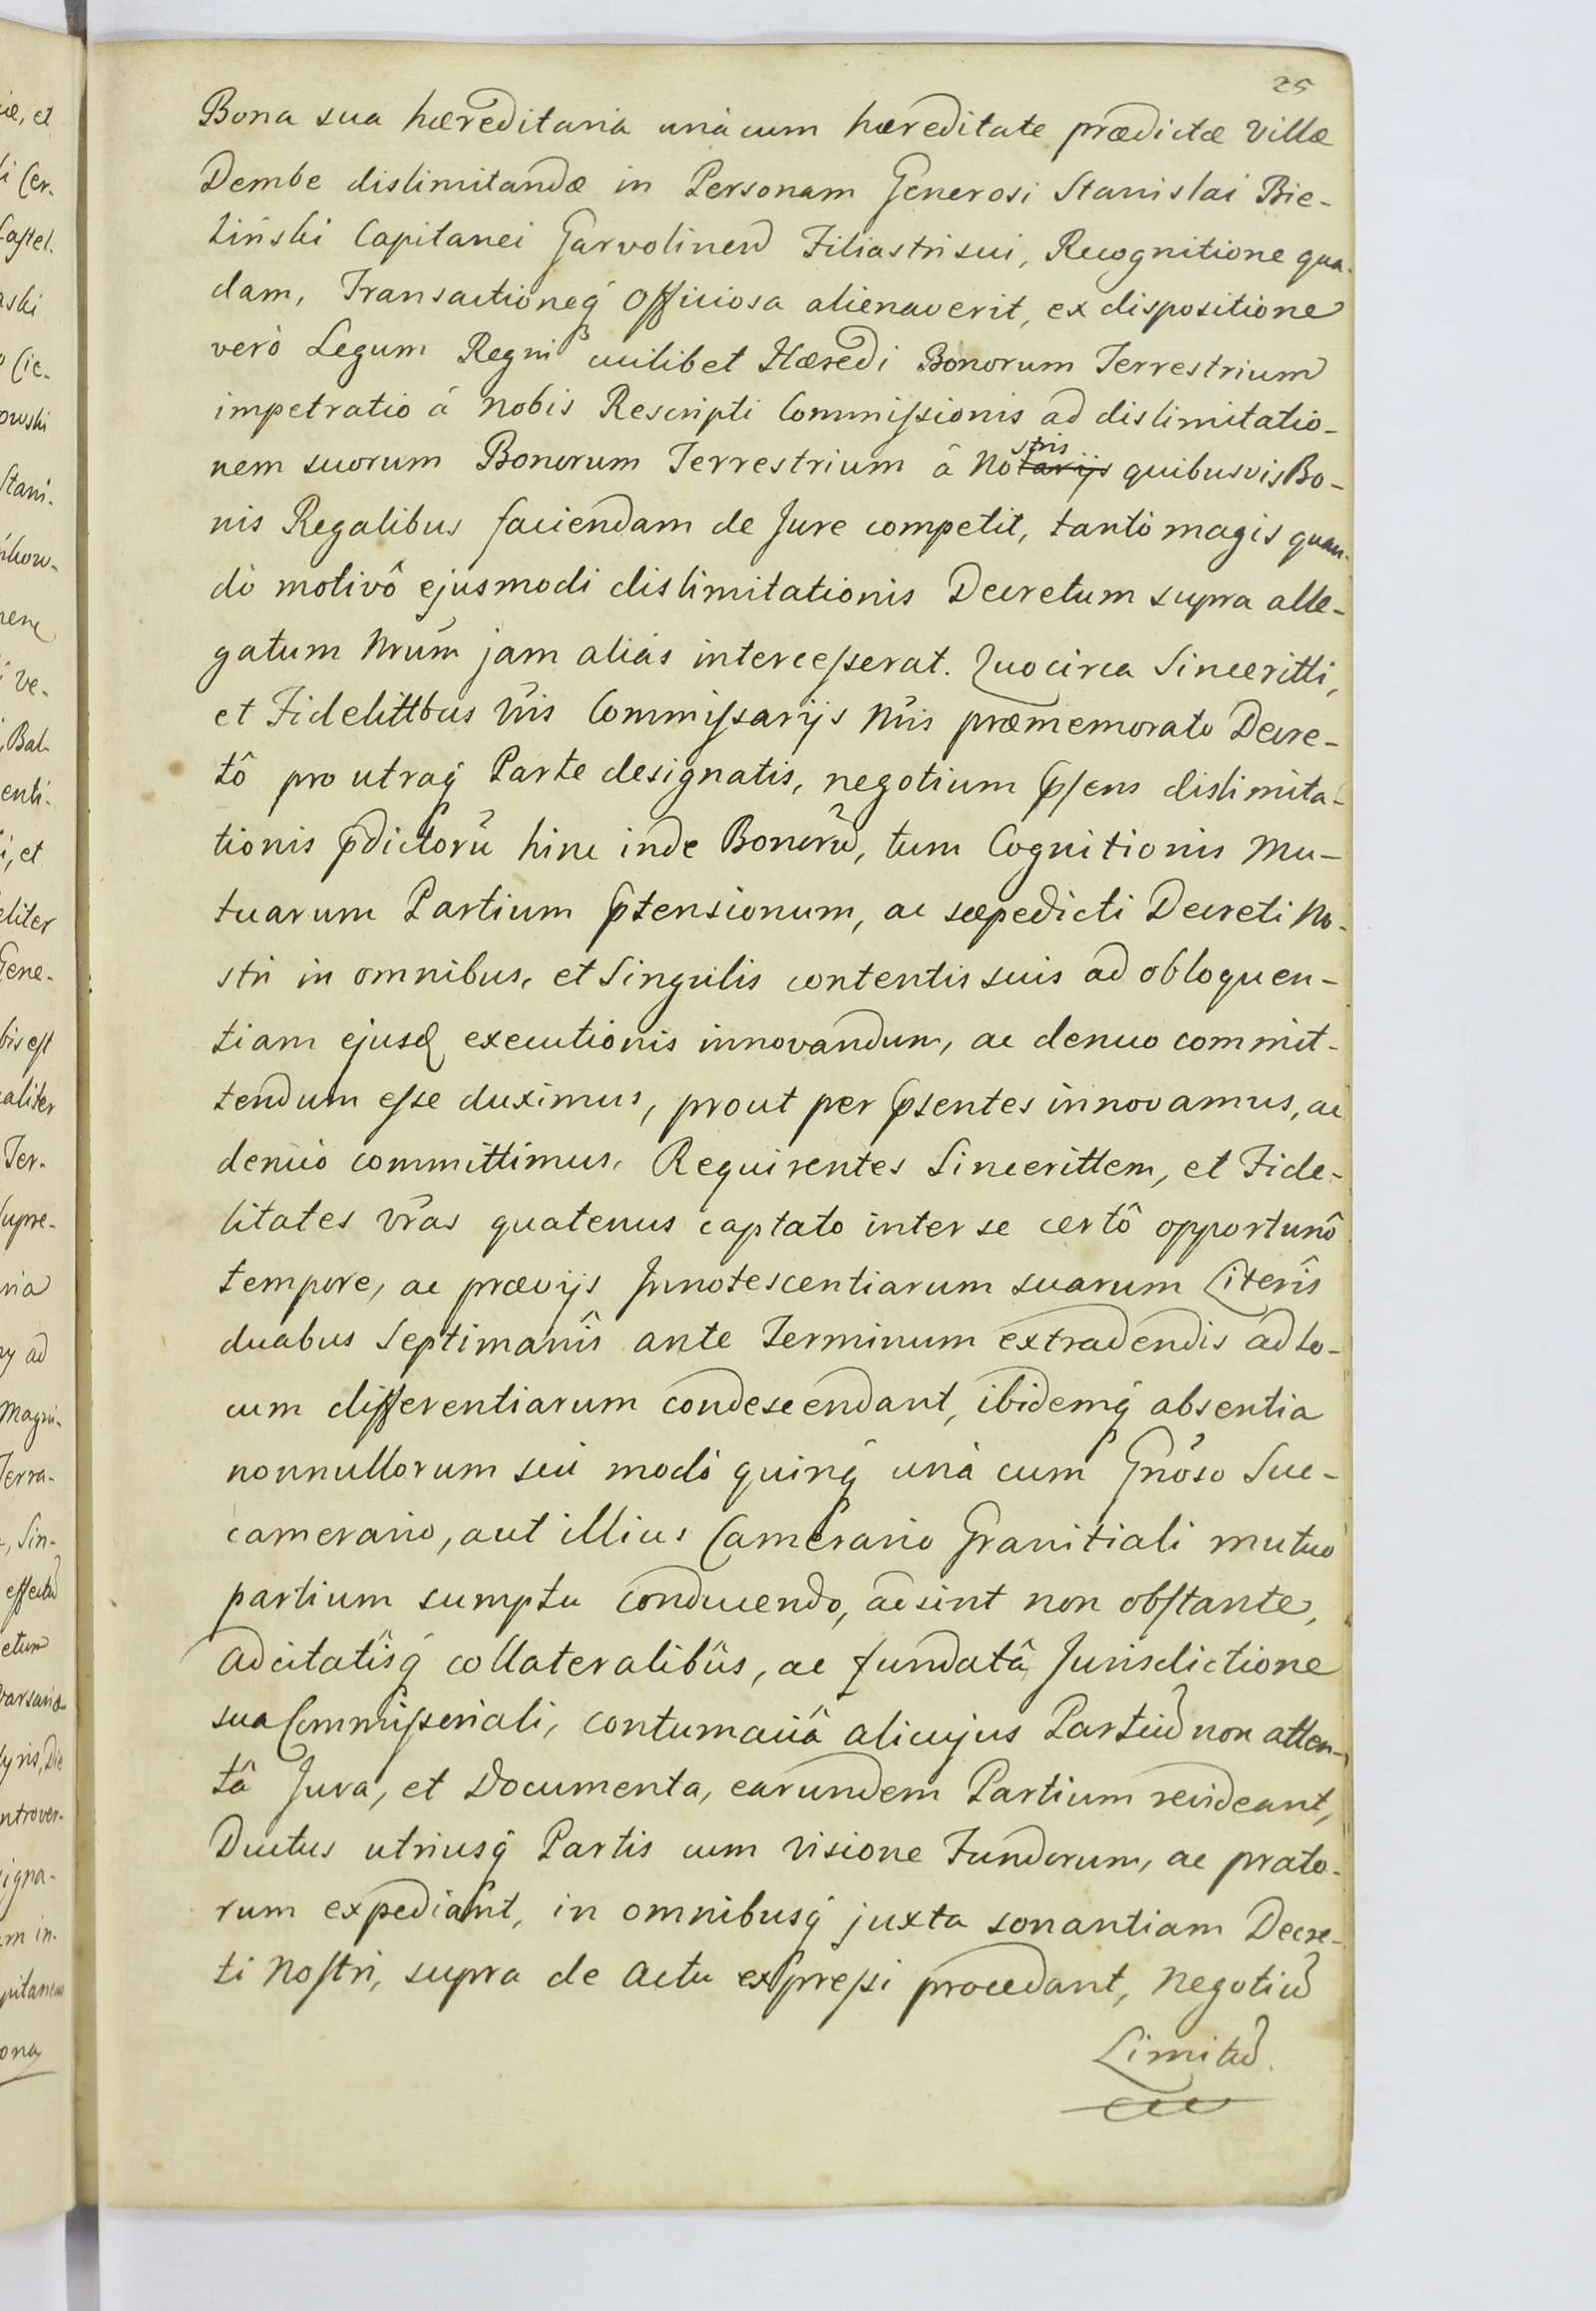 25
Bona sua hæreditaria unà cum hæreditate prædictæ Villæ
Dembe dislimitandæ in Personam Generosi Stanislai Bie-
liński Capitanei Garvolinen Filiastri sui, Recognitione qua-
dam, Transactioneq́ Officiosa alienaverit, ex dispositione
verò Legum Regni cuilibet Hæredi Bonorum Terrestrium
impetratio á Nobis Rescripti Commißionis ad dislimitatio-
nem suorum Bonorum Terrestrium â Nostris quibusvis Bo-
nis Regalibus faciendam de Jure competit, tantò magis quan-
dò motivô ejusmodi dislimitationis Decretum supra alle-
gatum Nrūm jam aliás interceßerat. Quocirca Sinceritti,
et Fidelittbus Vris Commißarijs Nris præmemorato Decre-
tô pro utraq́ Parte designatis, negotium pſens dislimita-
tionis pdictorū hinc inde Bonorū, tum Cognitionis Mu-
tuarum Partium ptensionum, ac sæpedicti Decreti No-
stri in omnibus, et Singulis contentis suis ad obloquen-
tiam ejusd executionis innovandum, ac denuo commit-
tendum eße duximus, prout per psentes innovamus, ac
denuò committimus, Requirentes Sincerittem, et Fide-
litates vr̃as quatenus captato inter se certô opportunô
tempore, ac prævijs Innotescentiarum suarum Literîs
duabus Septimanîs ante Terminum extradendis ad lo-
cum differentiarum condescendant, ibidemq́ absentia
nonnullorum seù modò quinq́ unà cum Gnõso Suc-
camerario, aut illius Camerario Granitiali mutuo
partium sumptu conducendo, adsint non obſtante,
adcitatîsq́ collateralibûs, ac fundatâ Jurisdictione
sua Commißoriali, contumaciâ alicujus Partiū non atten-
tâ Jura, et Documenta, earundem Partium revideant,
Ductus utriusq́ Partis cum Visione Fundorum, ac prato-
rum expediant, in omnibusq́ juxta sonantiam Decre-
ti Noſtri, supra de Actu expreßi procedant, Negotiū
Limitū.